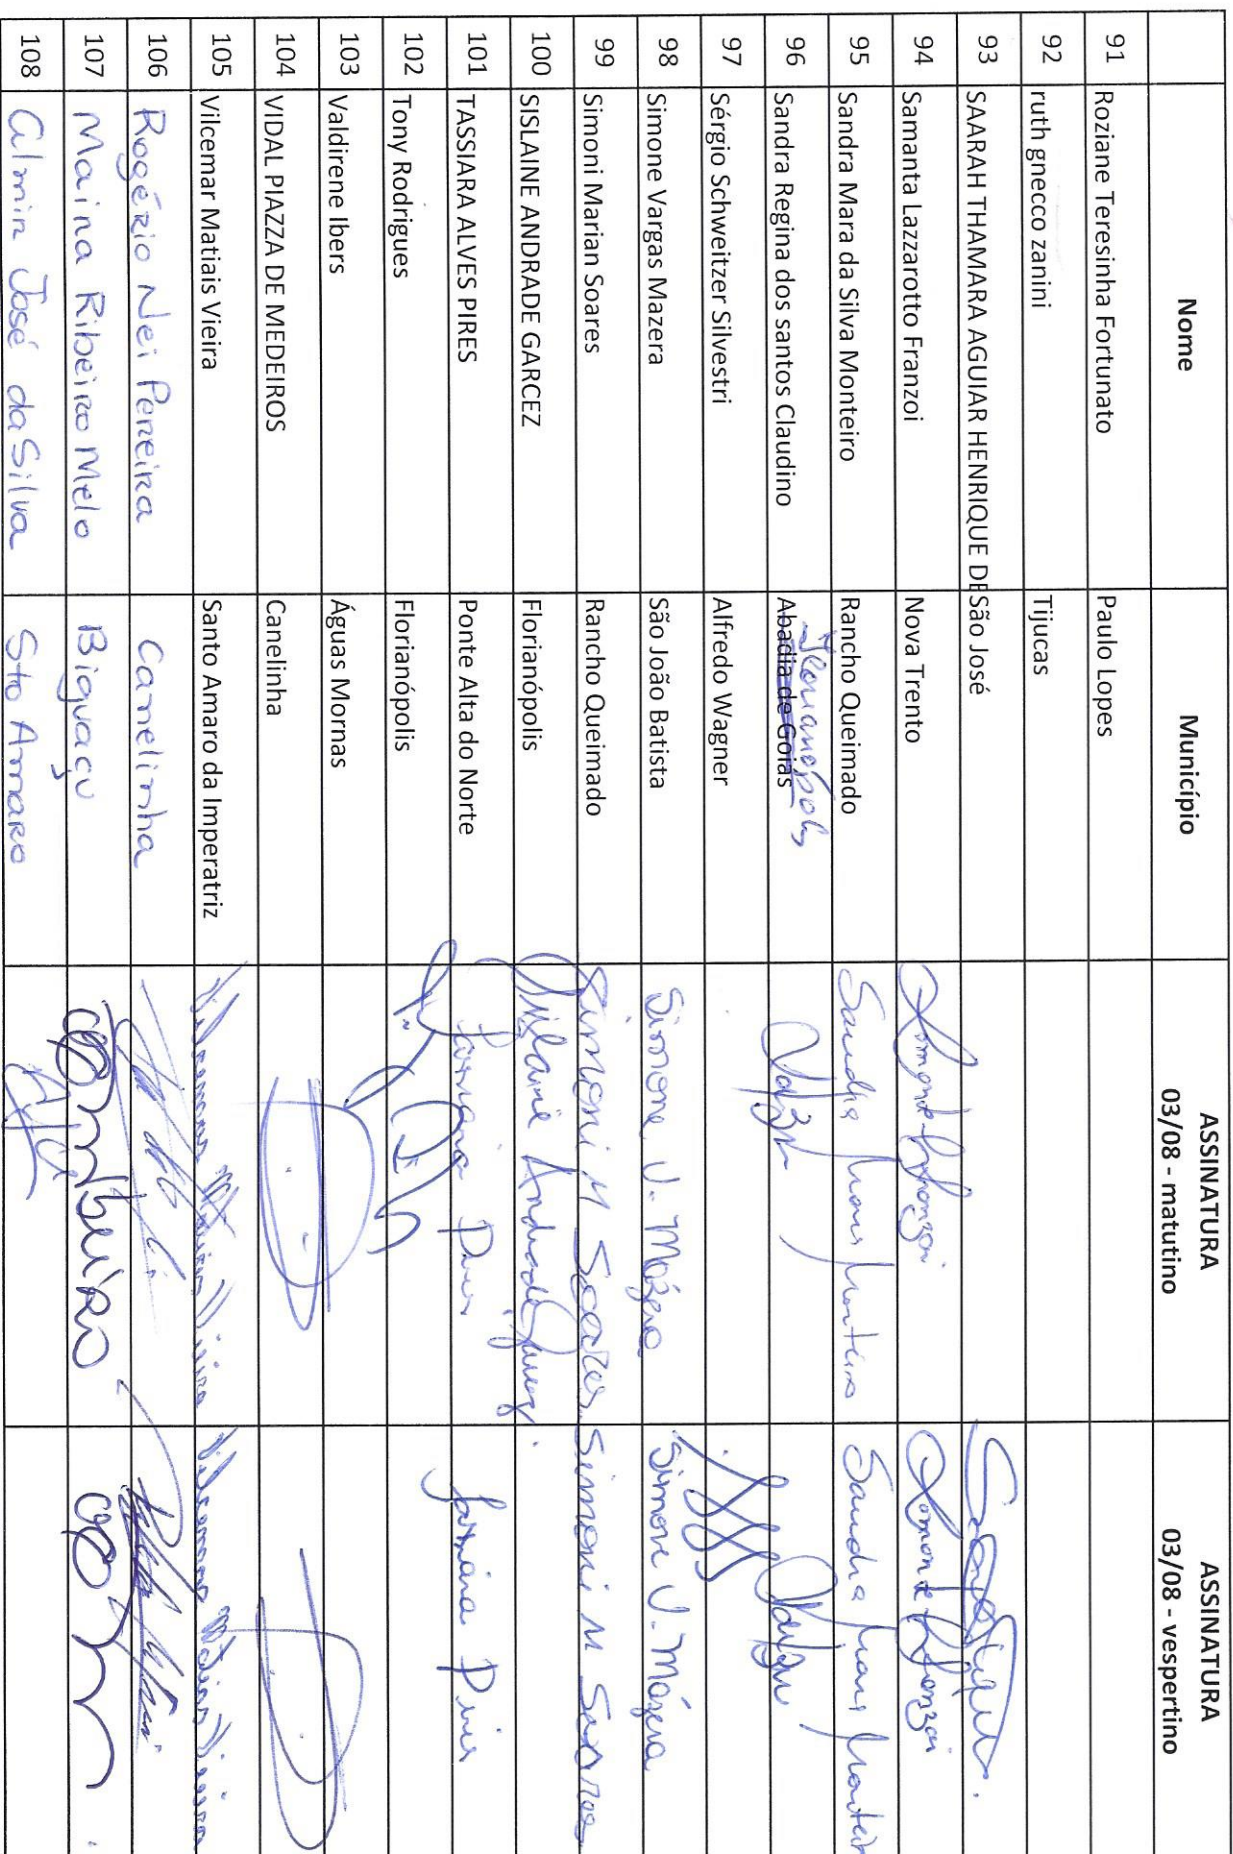 Nome Município ASSINATURA 03/08 - matutino ASSINATURA 03/08 - vespertino
91 Roziane Teresinha Fortunato Paulo Lopes
92 ruth gnecco zanini Tijucas
93 SAARAH THAMARA AGUIAR HENRIQUE DE São José
94 Samanta Lazzarotto Franzoi Nova Trento
95 Sandra Mara da Silva Monteiro Rancho Queimado Sandra Mara Monteiro Sandra Mara Monteir
96 Sandra Regina dos santos Claudino Abadia de Goiás Florianópolis
97 Sérgio Schweitzer Silvestri Alfredo Wagner
98 Simone Vargas Mazera São João Batista Simone V. Mazera Simone V. Mazera
99 Simoni Marian Soares Rancho Queimado Simoni M Soares Simoni M Soares
100 SISLAINE ANDRADE GARCEZ Florianópolis Sislaine Andrade Garcez
101 TASSIARA ALVES PIRES Ponte Alta do Norte Tassiara Pires Tassiara Pires
102 Tony Rodrigues Florianópolis
103 Valdirene Ibers Águas Mornas
104 VIDAL PIAZZA DE MEDEIROS Canelinha
105 Vilcemar Matiais Vieira Santo Amaro da Imperatriz Vilcemar Matiais Vieira Vilcemar Matiais Vieira
106 Rogério Nei Pereira Canelinha
107 Maina Ribeiro Melo Biguaçu
108 Almir José da Silva Sto Amaro